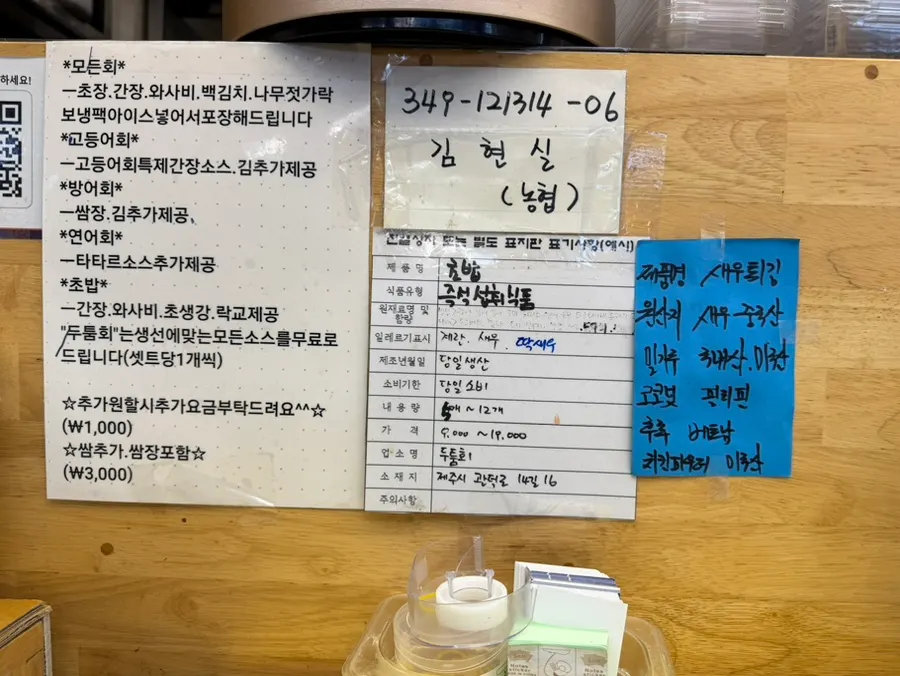 하세요!
*모든회*
—초장.간장.와사비.백김치.나무젓가락
보냉팩아이스넣어서포장해드립니다
*고등어회*
—고등어회특제간장소스.김추가제공
*방어회*
—쌈장.김추가제공、
*연어회*
—타타르소스추가제공
*초밥*
—간장.와사비.초생강.락교제공
"두툼회"는생선에맞는모든소스를무료로
드립니다(셋트당1개씩)
☆추가원할시추가요금부탁드려요^^☆
(₩1,000)
☆쌈추가.쌈장포함☆
(₩3,000)
349-121314-06
김현실
(농협)
또는 별도 표지판 표기사항(예시)
제품명 초밥
식품유형 즉석섭취식품
원재료명 및 함량
알레르기표시 계란. 새우. 딱새우
제조년월일 당일생산
소비기한 당일소비
내용량 개~12개
가격 9.000~19.000
업소명 두툼회
소재지 제주시 관덕로 14길 16
주의사항
제품명 새우튀김
원산지 새우 중국산
밀가루 국내산.미국산
코코넛 필리핀
후추 베트남
치킨파우더 미국산
Notes